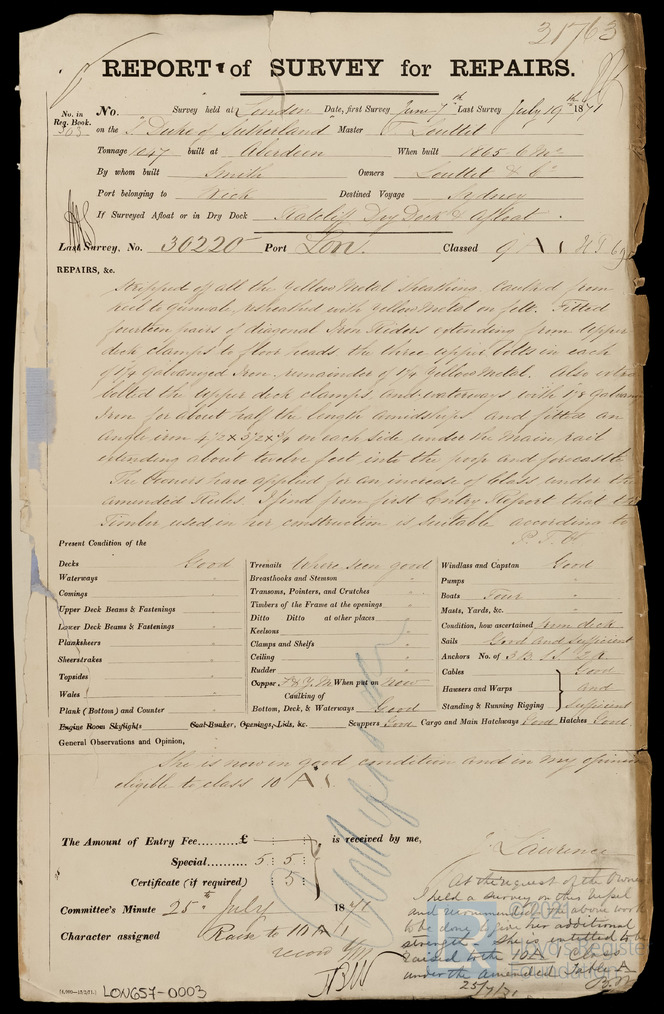 31763
REPORT of SURVEY for REPAIRS.
No. in Reg. Book. 363 No. Survey held at London Date, first Survey June 7th Last Survey July 19th 1871
on the "Duke of Sutherland" Master Louttit
Tonnage 1047 built at Aberdeen When built 1865 6 Mo
By whom built Smith Owners Louttit & Co
Port belonging to Wick Destined Voyage Sydney
If Surveyed Afloat or in Dry Dock Ratcliff Dry Dock & Afloat.
Last Survey, No. 30220 Port Lon. Classed 9 A 1
REPAIRS, &c.
Stripped of all the Yellow Metal Sheathing caulked from
rail to Gunwale, resheathed with Yellow Metal on felt. Fitted
fourteen pairs of diagonal Iron Riders extending from upper
deck clamps to floor heads, the three upper bolts in each
of 1¼ Galvanized Iron, remainder of 1¼ Yellow Metal. Also
bolted the upper deck clamps and waterways with 1⅛
Iron for about half the length amidships and fitted an
angle iron 4½ x 3½ x on each side under the main rail
extending about twelve feet into the poop and forecastle
The Owners have applied for an increase of Class under the
amended Rules. I find from first Entry Report that the
Timber used in her construction is suitable according to
P.T.O
Present Condition of the
Decks Good
Waterways "
Comings "
Upper Deck Beams & Fastenings "
Lower Deck Beams & Fastenings "
Planksheers "
Sheerstrakes "
Topsides "
Wales "
Plank (Bottom) and Counter "
Treenails Where seen good
Breasthooks and Stemson "
Transoms, Pointers, and Crutches "
Timbers of the Frame at the openings "
Ditto Ditto at other places "
Keelsons "
Clamps and Shelfs "
Ceiling "
Rudder "
Copper F & Y.M When put on now
Caulking of
Bottom, Deck, & Waterways Good
Windlass and Capstan Good
Pumps "
Boats Four "
Masts, Yards, &c. "
Condition, how ascertained from deck
Sails Good and Sufficient
Anchors No. of 3 B. 1 S. 2 K.
Cables Good
Hawsers and Warps and
Standing & Running Rigging Sufficient
Engine Room Skylights Coal-Bunker, Openings, Lids, &c. Scuppers Good Cargo and Main Hatchways Good Hatches Good.
General Observations and Opinion,
She is now in good condition and in my opinion
eligible to class 10 A 1.
The Amount of Entry Fee.......... £ is received by me,
Special.......... 5 : 5 :
Certificate (if required) : 5 :
J. Lawrence
Committee's Minute 25th July 1871
Character assigned Raise to 10 A 1
record
At the request of the Owner
I held a survey on this vessel
and recommended the above work
to be done to give her additional
strength. She is entitled to be
raised to the 10A Class
under the amended Table A
25/7/71
(4,000—15/2/71.) LON657-0003
© 2021
Lloyd's Register